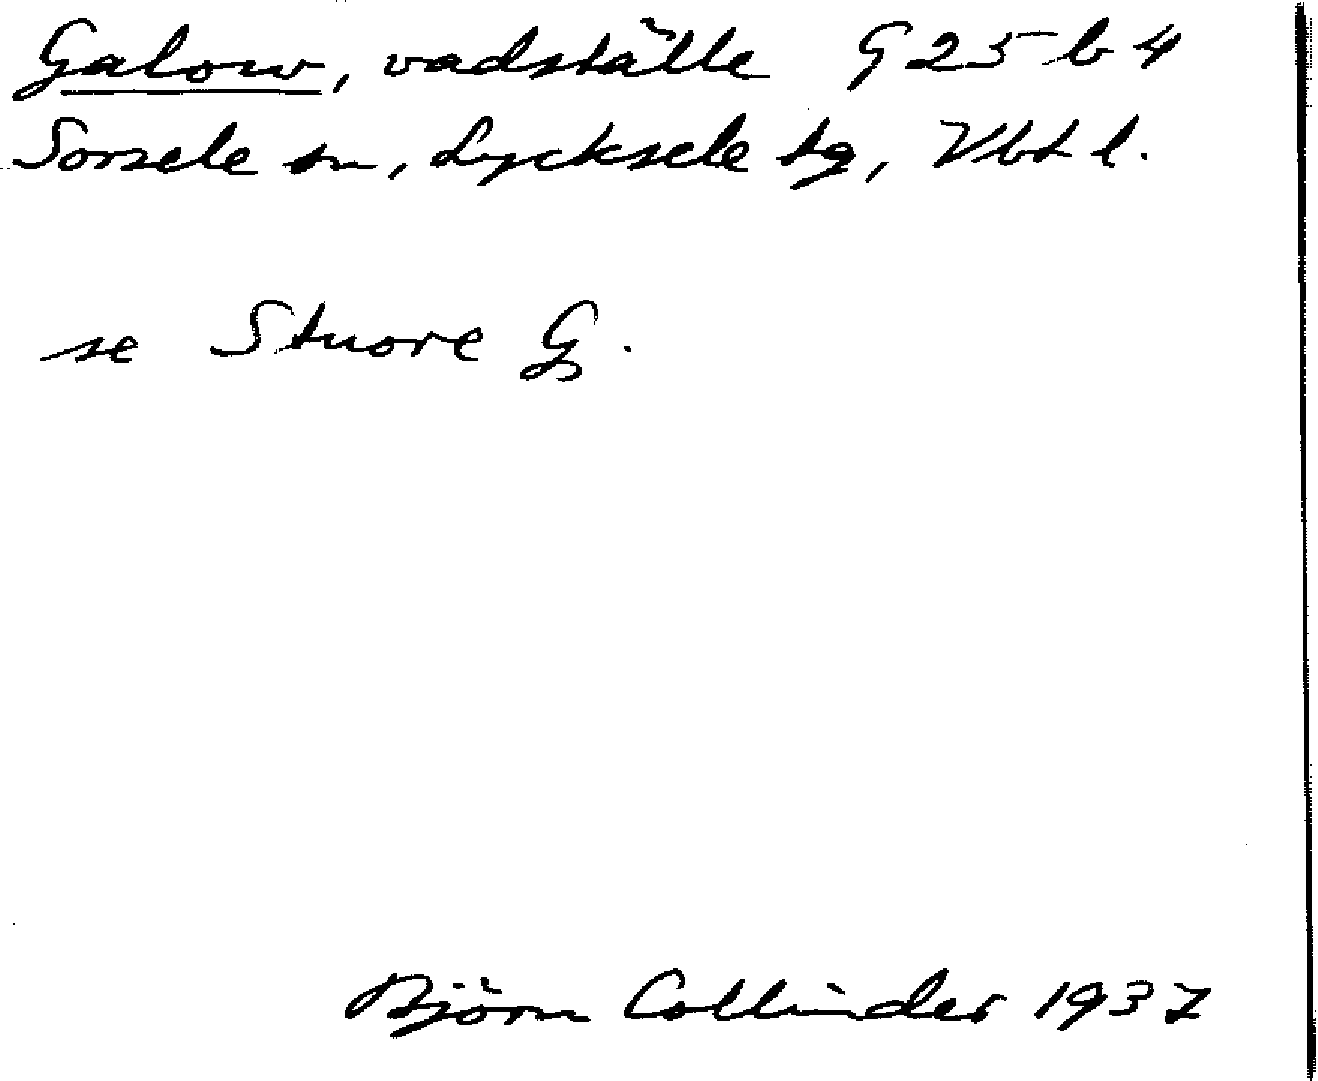 Galow, vadställe G 25 b 4
Sorsele sn, Lycksele tg, Vbt l.
se Stuore G.
Björn Collinder 1937